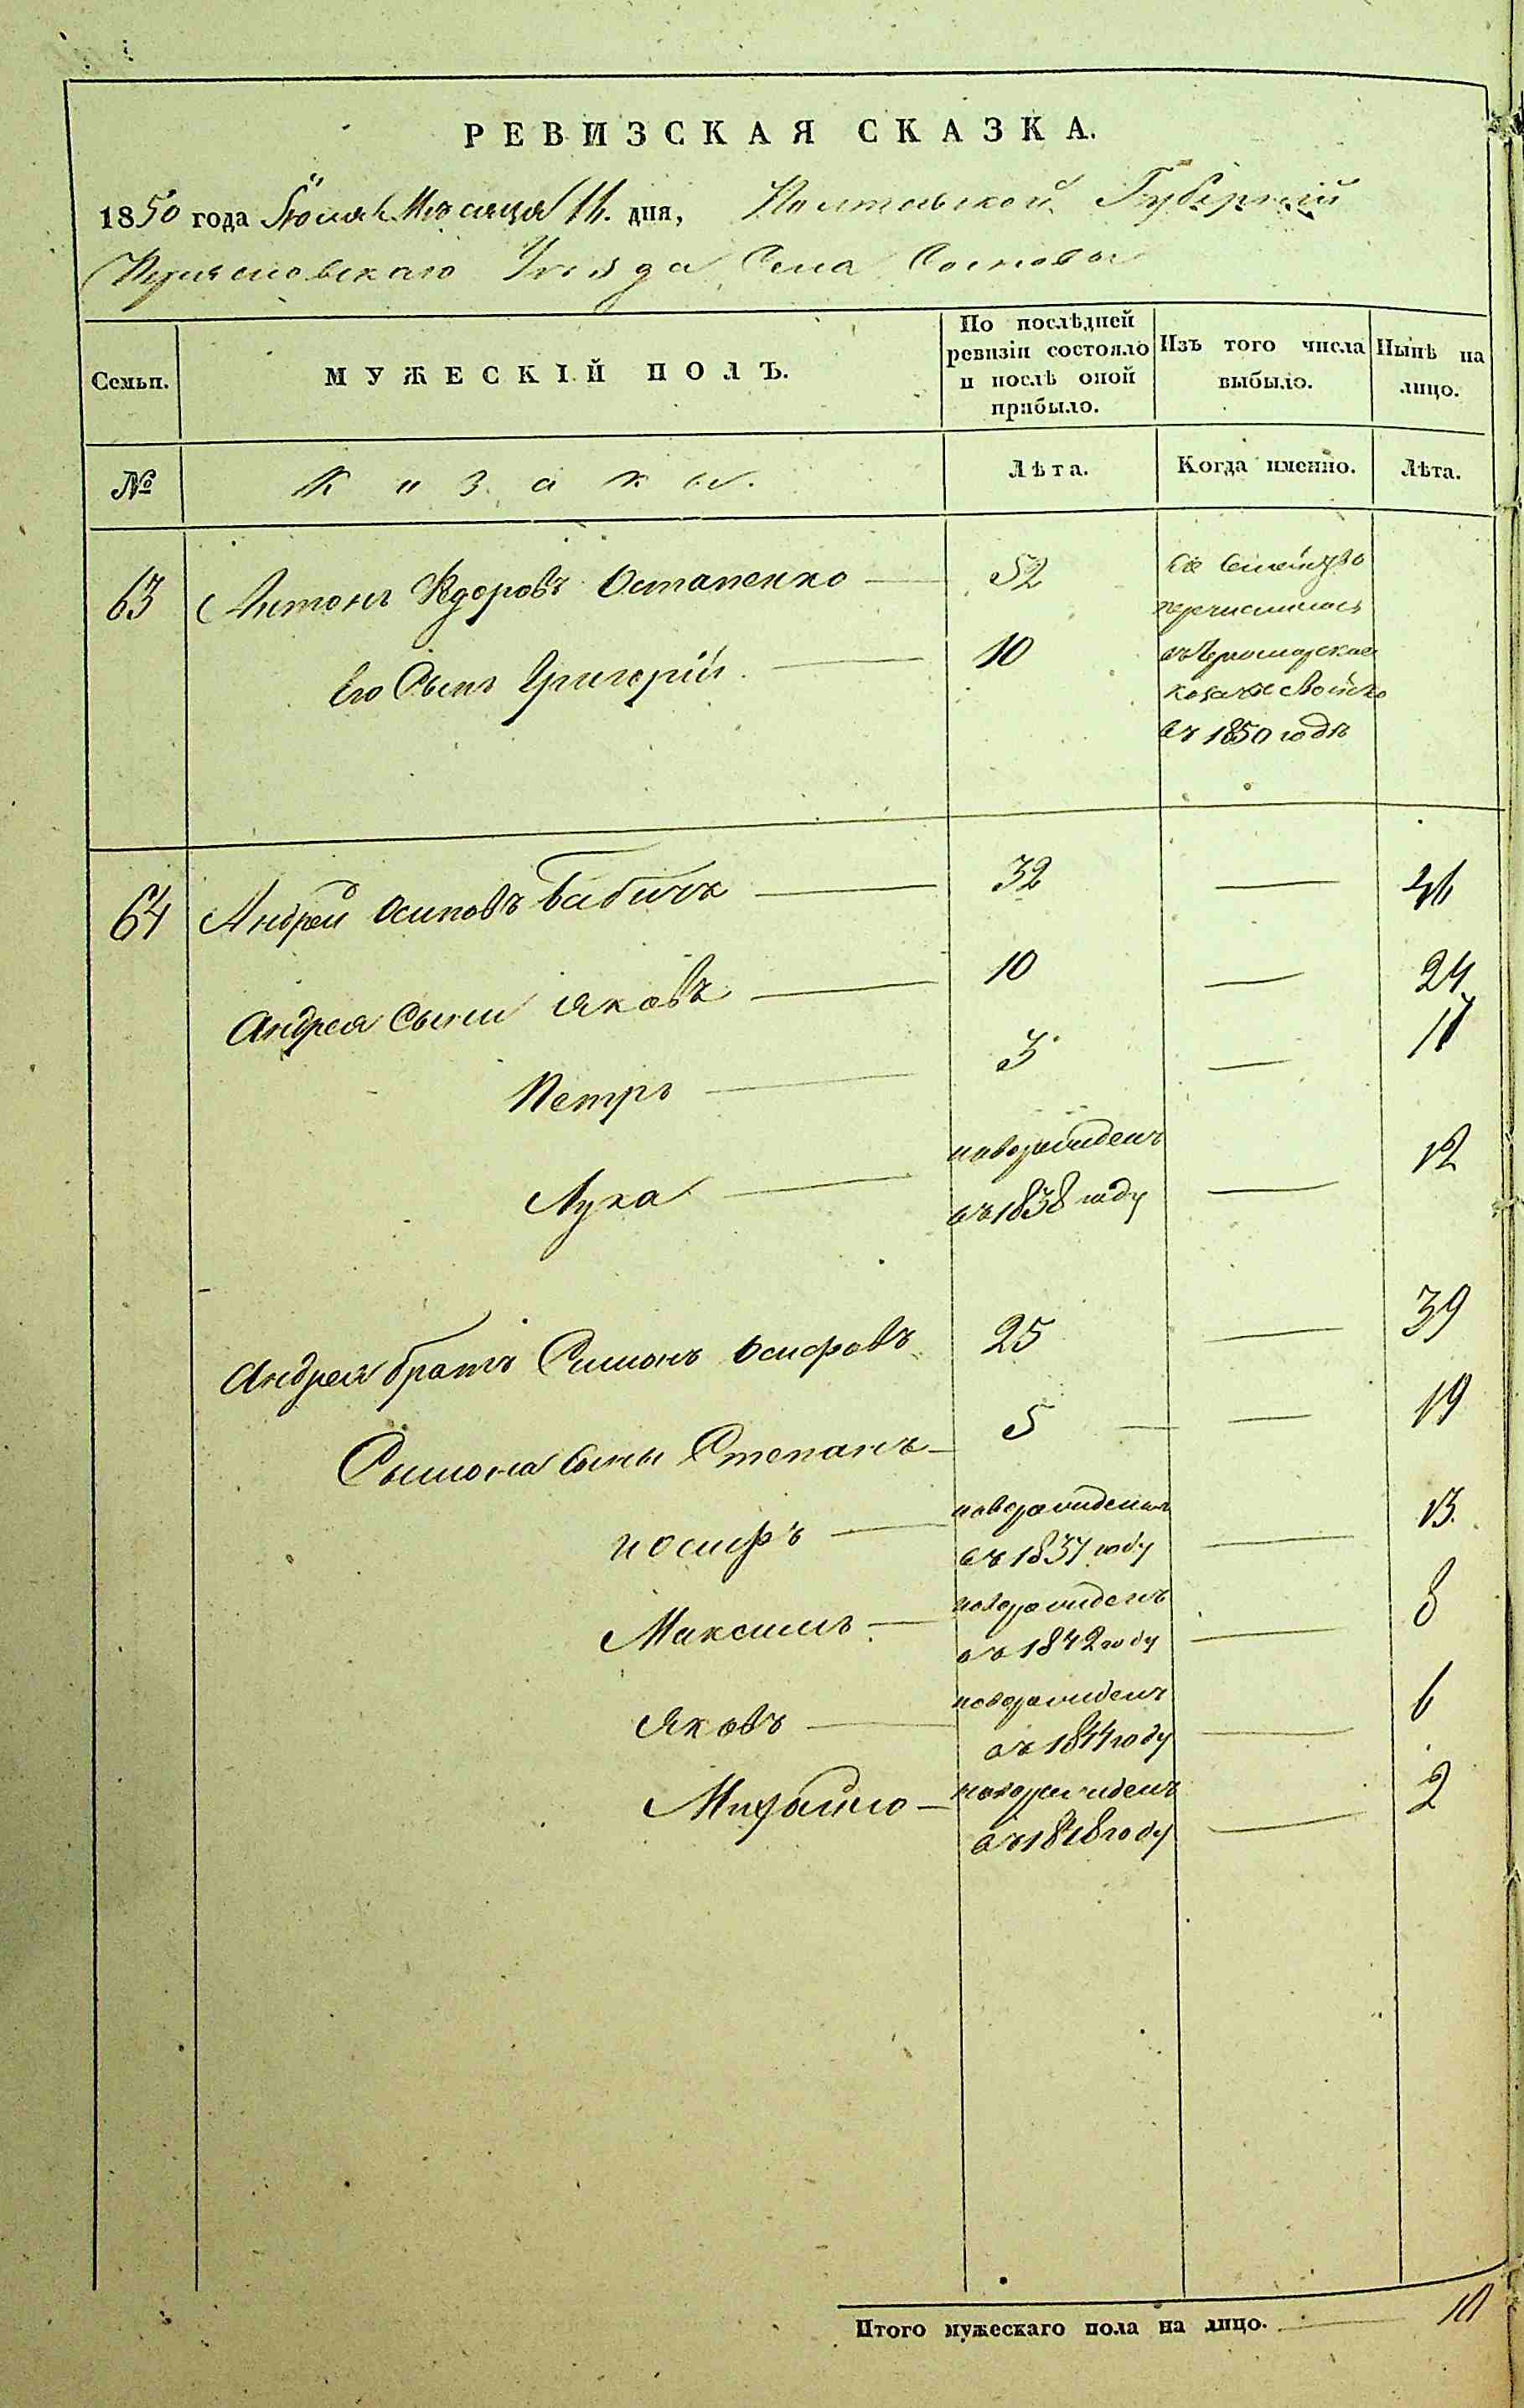 РЕВИЗСКАЯ СКАЗКА.
1850 года Іюля Мѣсяца 11. дня, Полтавской Губерніи
Переяславскаго Уѣзда Села Сосновы
Семьи.
МУЖЕСКІЙ ПОЛЪ.
По послѣдней ревизіи состояло и послѣ оной прибыло.
Изъ того числа выбыло.
Нынѣ на лицо.
№
Козаки.
Лѣта.
Когда именно.
Лѣта.
63 Антонъ Ѳедоровъ Остапенко — 52
Его Сынъ Григорій — 10
Сіе Семейство
перечислилось
въ Черноморское
козачье Войско
въ 1850 годѣ
64 Андрей Осиповъ Бабичъ — 32 — 46
Андрея Сыны Яковъ — 10 — 24
Петръ — 3 — 17
Лука — новорожденъ въ 1838 году — 12
Андрея братъ Симонъ Осифовъ 25 — 39
Сымона Сыны Степанъ — 5 — 19
Иосифъ — новорожденъ въ 1837 году — 13.
Максимъ — новорожденъ въ 1842 году — 8
Яковъ — новорожденъ въ 1844 году — 6
Михайло — новорожденъ въ 1848 году — 2
Итого мужескаго пола на лицо. — 10